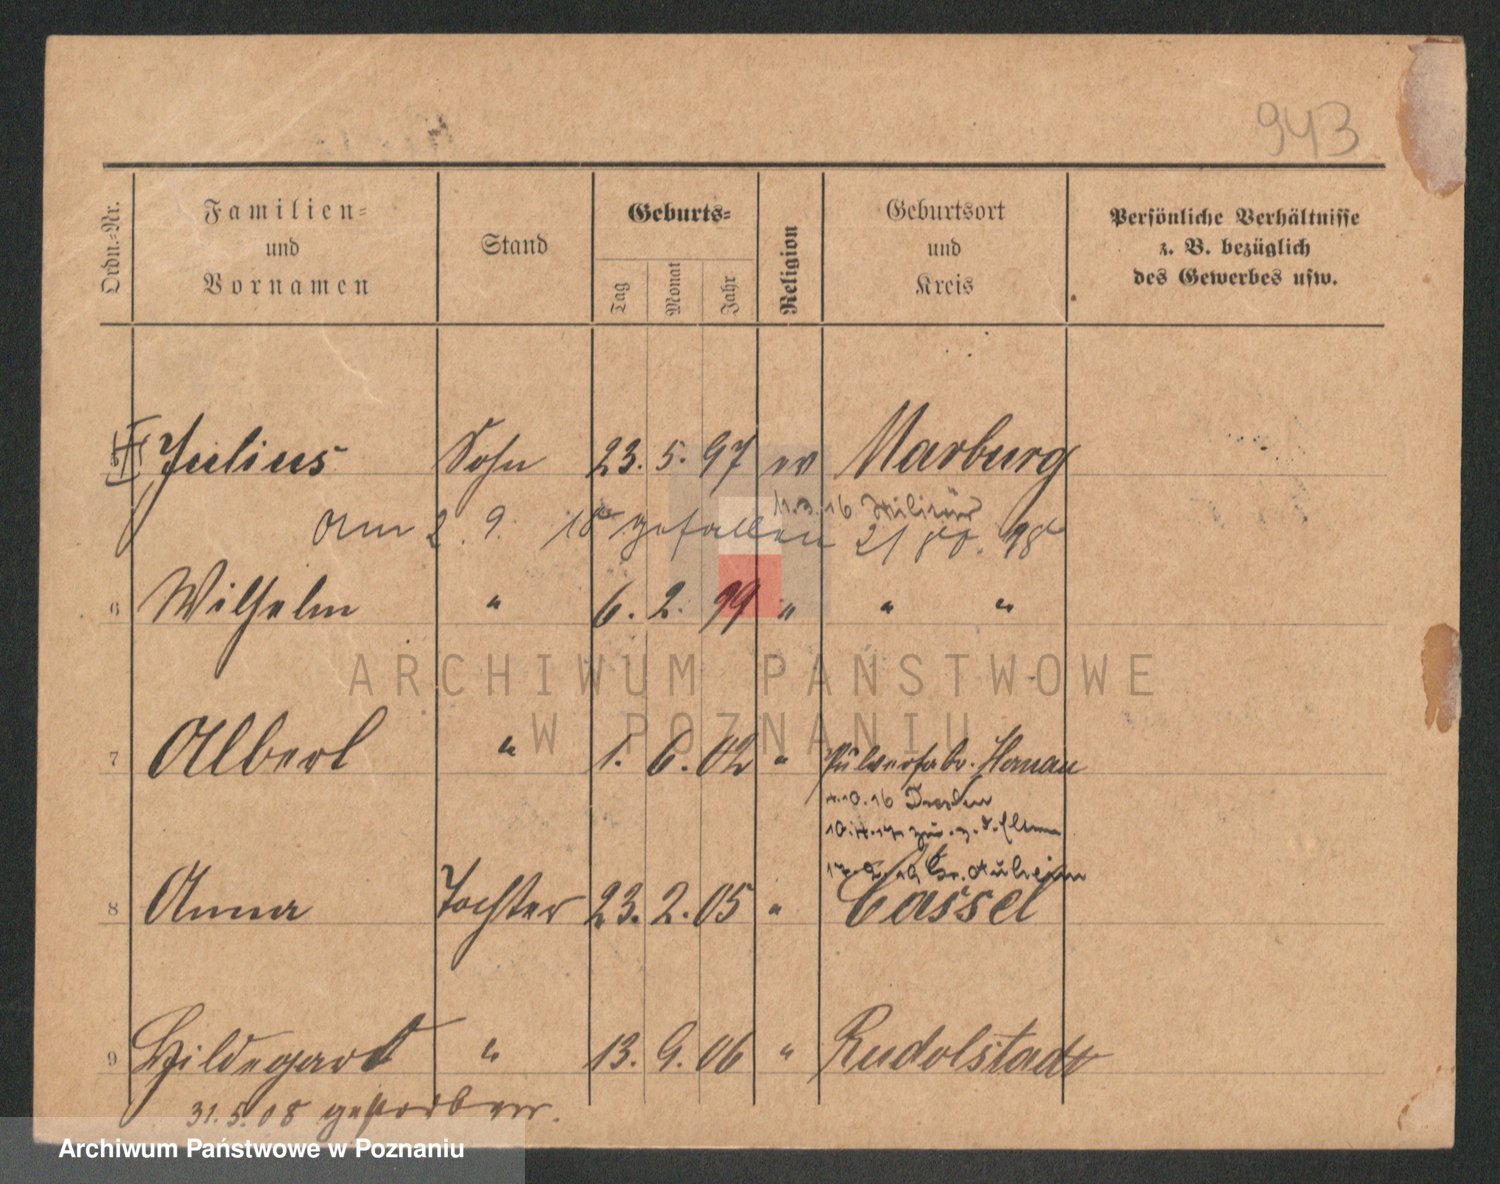 943
Ordn.-Nr.
Familien-
und
Vornamen
Stand
Geburts-
Tag
Monat
Jahr
Religion
Geburtsort
und
Kreis
Persönliche Verhältnisse
z. B. bezüglich
des Gewerbes usw.
Julius Sohn 23. 5. 97 ev Marburg
11.3.16 Militär
Am 2. 9. 18 gefallen
6 Wilhelm " 6. 2. 99 " " "
ARCHIWUM PAŃSTWOWE
W POZNANIU
7 Albert " 1. 6. 02 " Pulverfabr. Hanau
4.10.16 Dresden
zur. z. d. Eltern
Gr. Auheim
8 Anna Tochter 23. 2. 05 " Cassel
9 Hildegard " 13. 9. 06 " Rudolstadt
31. 5. 08 gestorben.
Archiwum Państwowe w Poznaniu